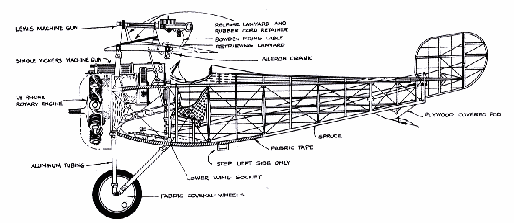 LEWIS MACHINE GUN
RELEASE LANYARD AND
RUBBER CORD RETAINER
BOWDEN FIRING CABLE
RETRIEVING LANYARD
SINGLE VICKERS MACHINE GUN
AILERON CRANK
LE RHONE
ROTARY ENGINE
PLYWOOD COVERED
SPRUCE
FABRIC TAPE
ALUMINUM TUBING
STEP LEFT SIDE ONLY
LOWER WING SOCKET
FABRIC COVERED WHEELS